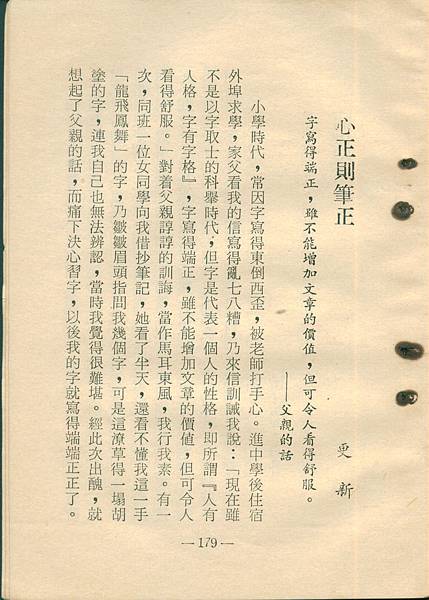 心正則筆正
更新
字寫得端正，雖不能增加文章的價值，但可令人看得舒服。
——父親的話
小學時代，常因字寫得東倒西歪，被老師打手心。進中學後住宿
外埠求學，家父看我的信寫得亂七八糟，乃來信訓誡我說：「現在雖
不是以字取士的科舉時代，但字是代表一個人的性格，即所謂『人有
人格，字有字格』，字寫得端正，雖不能增加文章的價值，但可令人
看得舒服。」對着父親諄諄的訓誨，當作馬耳東風，我行我素。有一
次，同班一位女同學向我借抄筆記，她看了半天，還看不懂我這一手
「龍飛鳳舞」的字，乃皺皺眉頭指問我幾個字，可是這潦草得一塌胡
塗的字，連我自己也無法辨認，當時我覺得很難堪。經此次出醜，就
想起了父親的話，而痛下決心習字，以後我的字就寫得端端正正了。
—179—